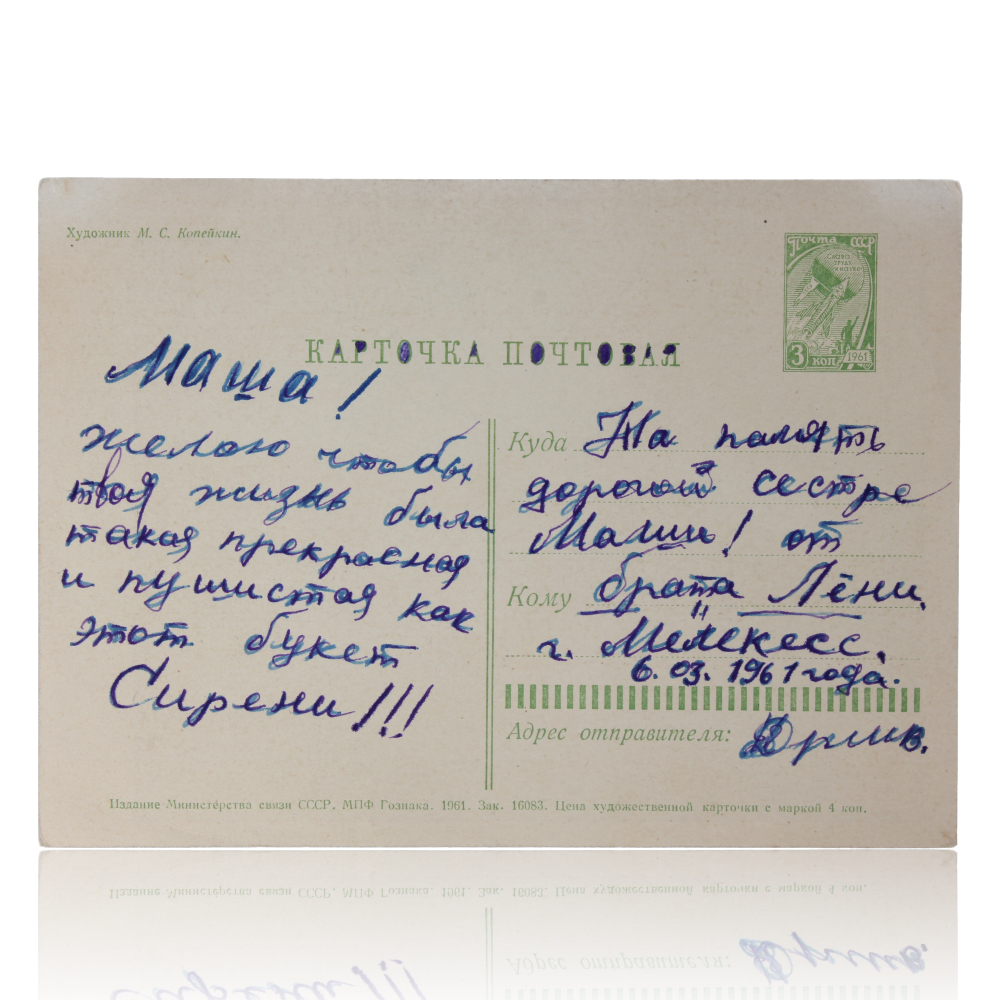 Художник М. С. Копейкин.
Почта СССР
СЛАВА
ТРУДУ
И НАУКЕ
3 КОП 1961
КАРТОЧКА ПОЧТОВАЯ
Маша!
желаю чтобы
твоя жизнь была
такая прекрасная
и пушистая как
этот букет
Сирени!!!
Куда На память
дорогой сестре
Маши! от
Кому брата Лёни.
г. Мелекесс.
6. 03. 1961 года.
Адрес отправителя:
Издание Министерства связи СССР. МПФ Гознака. 1961. Зак. 16083. Цена художественной карточки с маркой 4 коп.